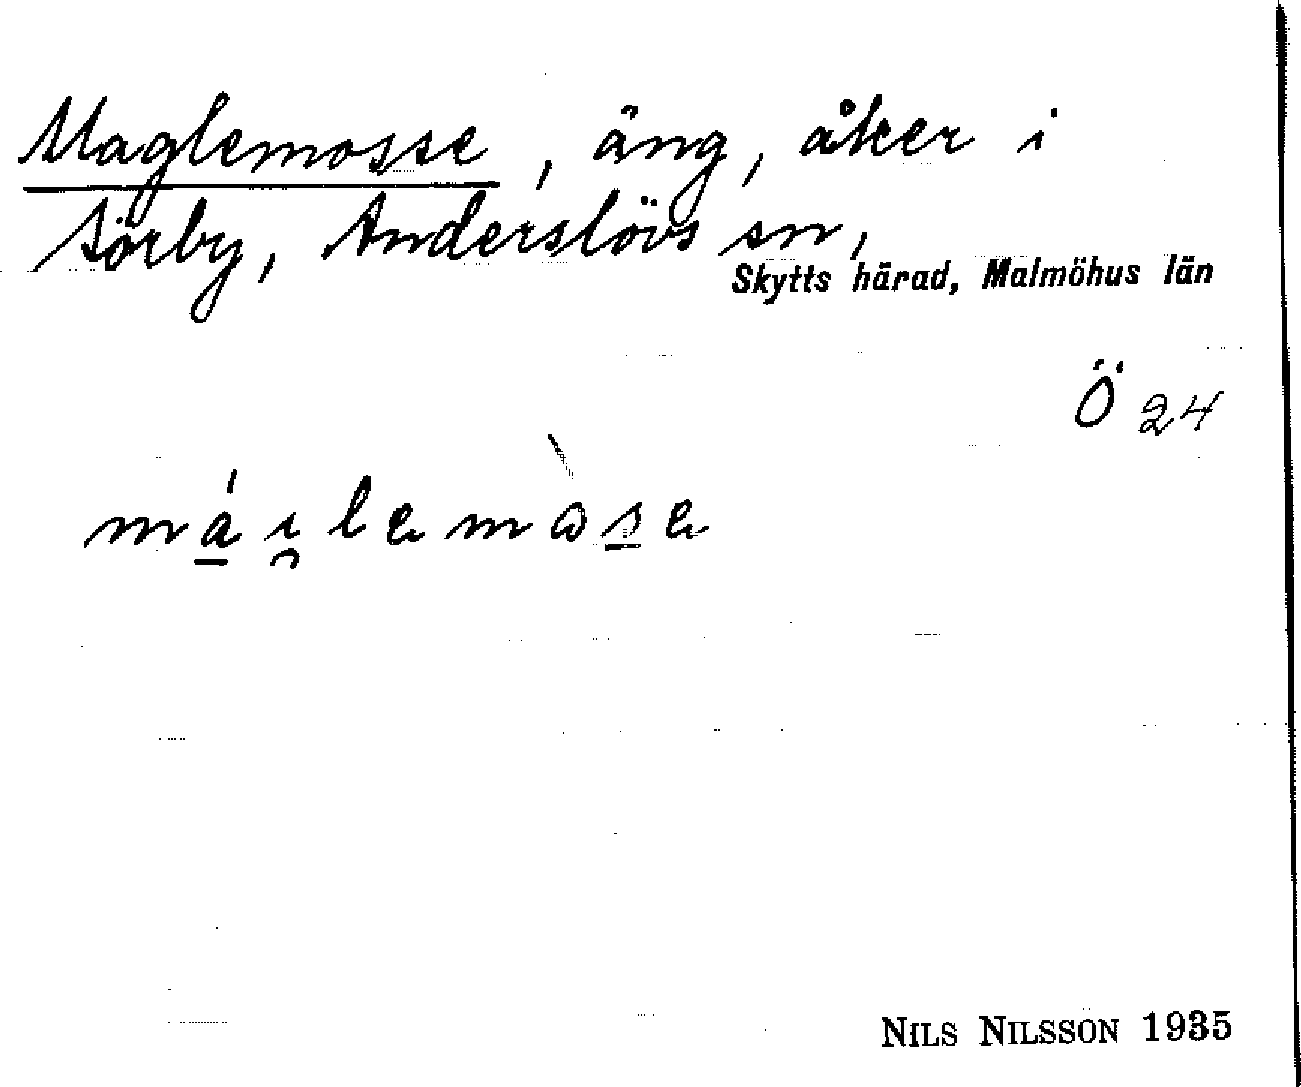 Maglemosse, äng, åker i
Sörby, Anderslövs sn,
Skytts härad, Malmöhus län
Ö 24
má̱i̯lemɷ̀s̱e
NILS NILSSON 1935